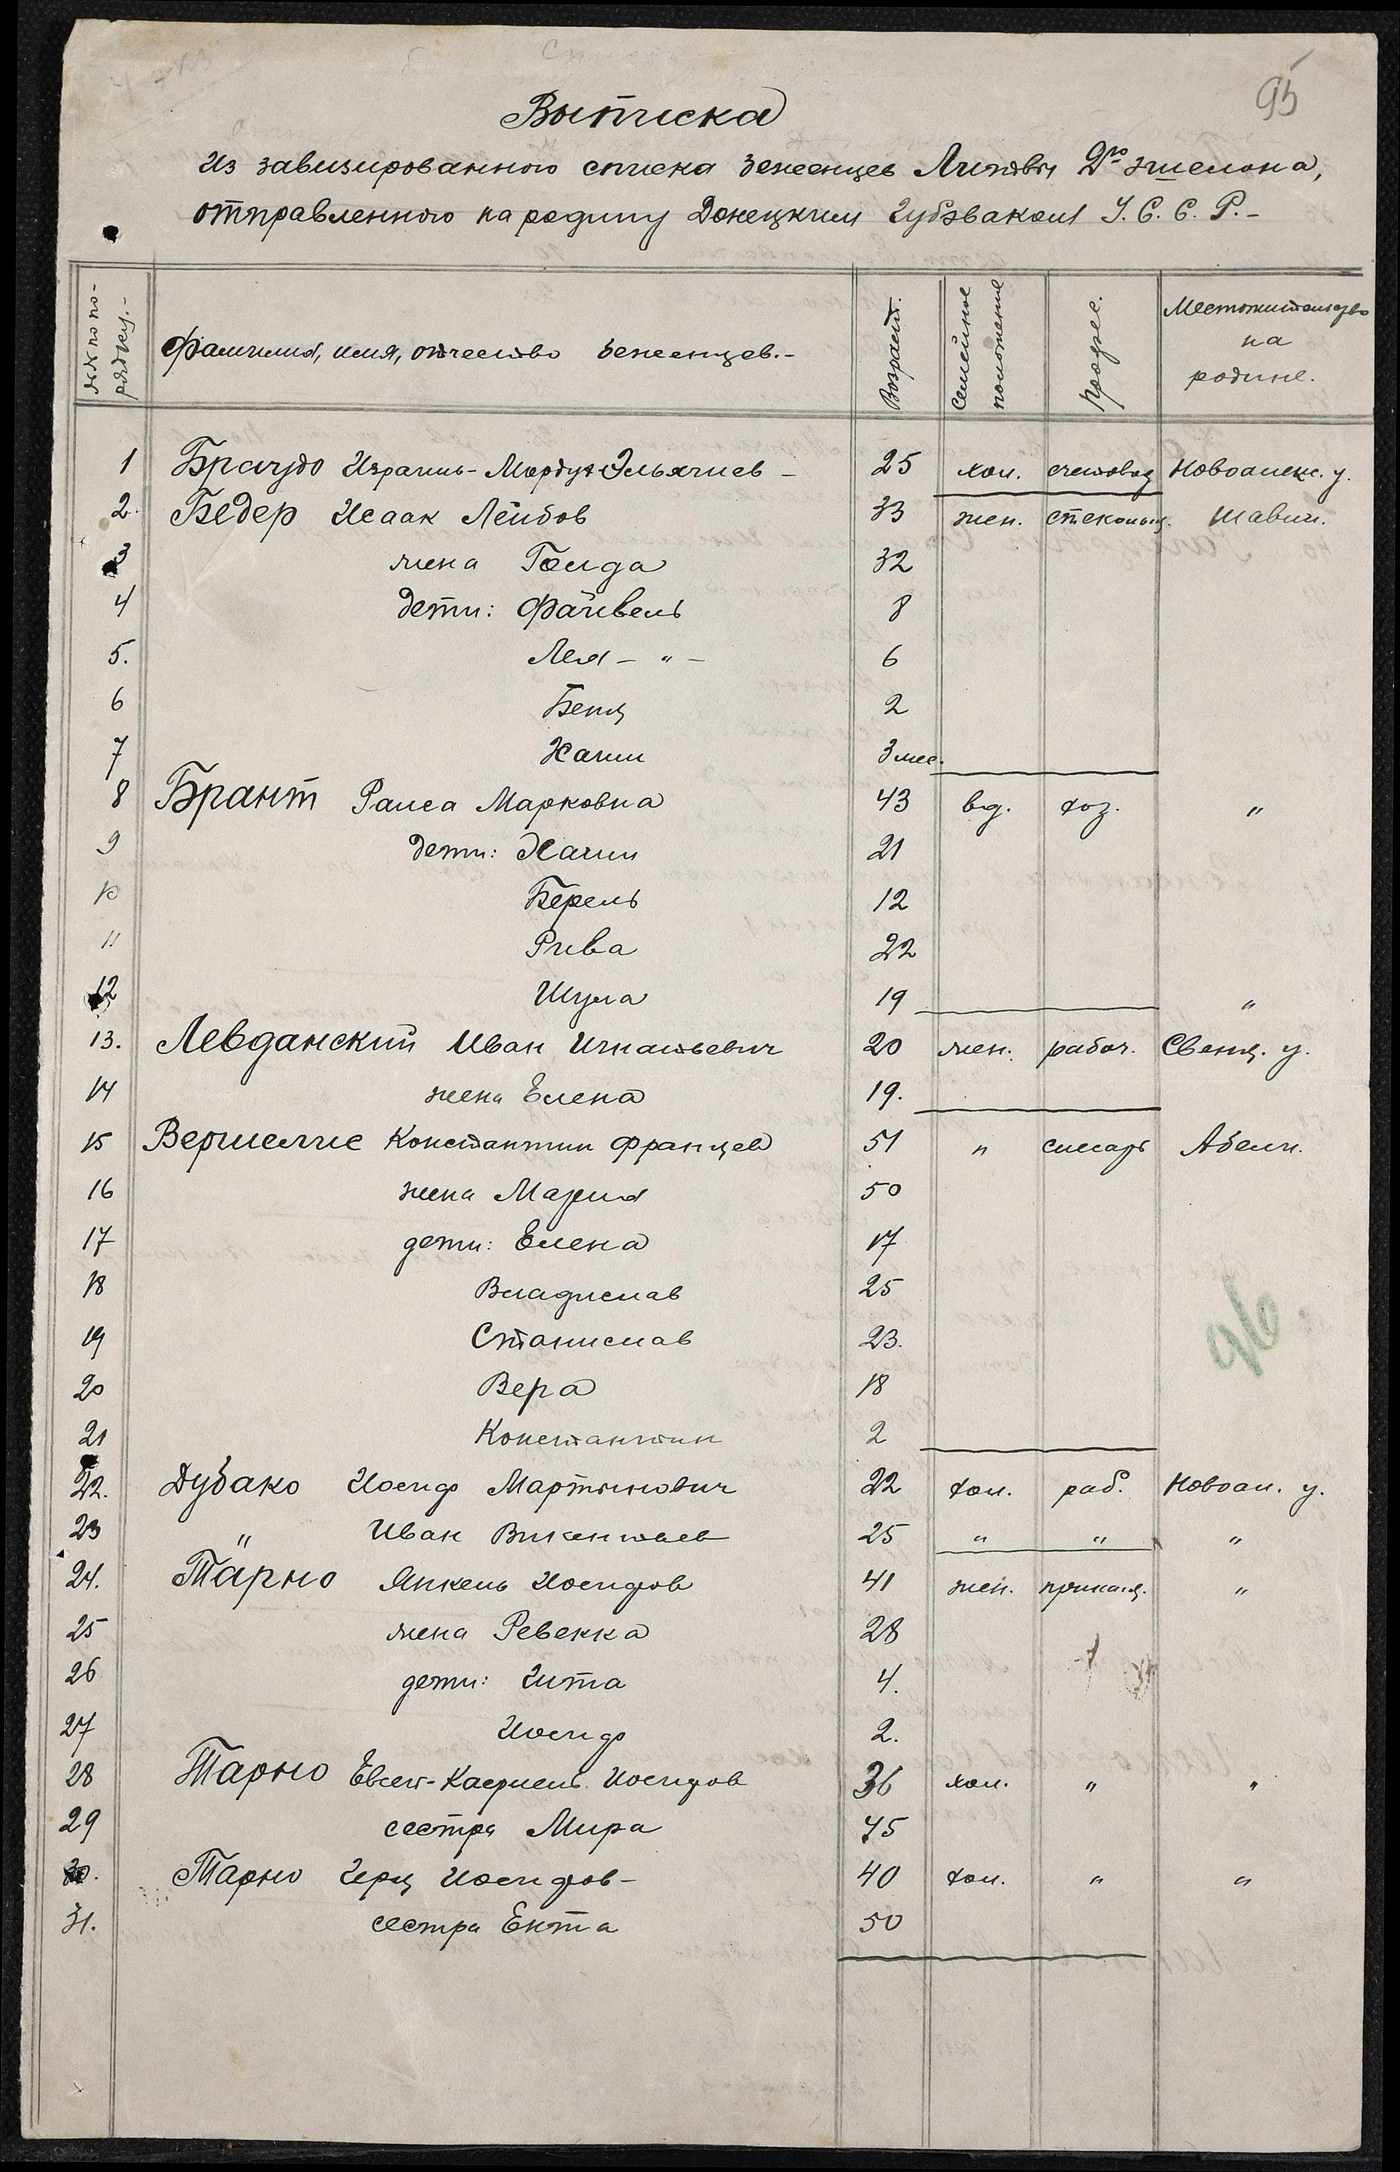 95
Выписка
Из завизированного списка беженцев Литовы 2го эшелона,
отправленного на родину Донецким Губэваком У.С.С.Р.-
№№ по по-
рядку.-
Фамилия, имя, отчество беженцев.-
Возраст.
Семейное
положение
Професс.
Местожительство
на
родине.
1 Браудо Израиль-Мордух Эльяшев - 25 хол. счетовод Новоалекс. у.
2. Бедер Исаак Лейбов 33 жен. стекольщ. Шавл.
3 жена Голда 32
4 дети: Файвель 8
5. Лея - " - 6
6 Бенц 2
7 Хаим 3 мес.
8 Брант Раиса Марковна 43 вд. хоз. "
9 дети: Хаим 21
10 Берель 12
11 Рива 22
12 Шула 19 "
13. Левданский Иван Игнатьевич 20 жен. рабоч. Свенц. у.
14 жена Елена 19.
15 Вершелис Константин Францев 51 " слесарь Абели.
16 жена Мария 50
17 дети: Елена 17
18 Владислав 25
19 Станислав 23.
20 Вера 18
21 Константин 2
96
22. Дубако Иосиф Мартынович 22 хол. раб. Новоал. у.
23 " Иван Викентьев 25 " " "
24. Тарно Янкель Иосифов 41 жен. приказч. "
25 жена Ревекка 28
26 дети: Гита 4.
27 Иосиф 2.
28 Тарно Евсей- Иосифов 36 хол. " "
29 сестра Мира 45
30. Тарно Герц Иосифов - 40 хол. " "
31. сестра Ента 50